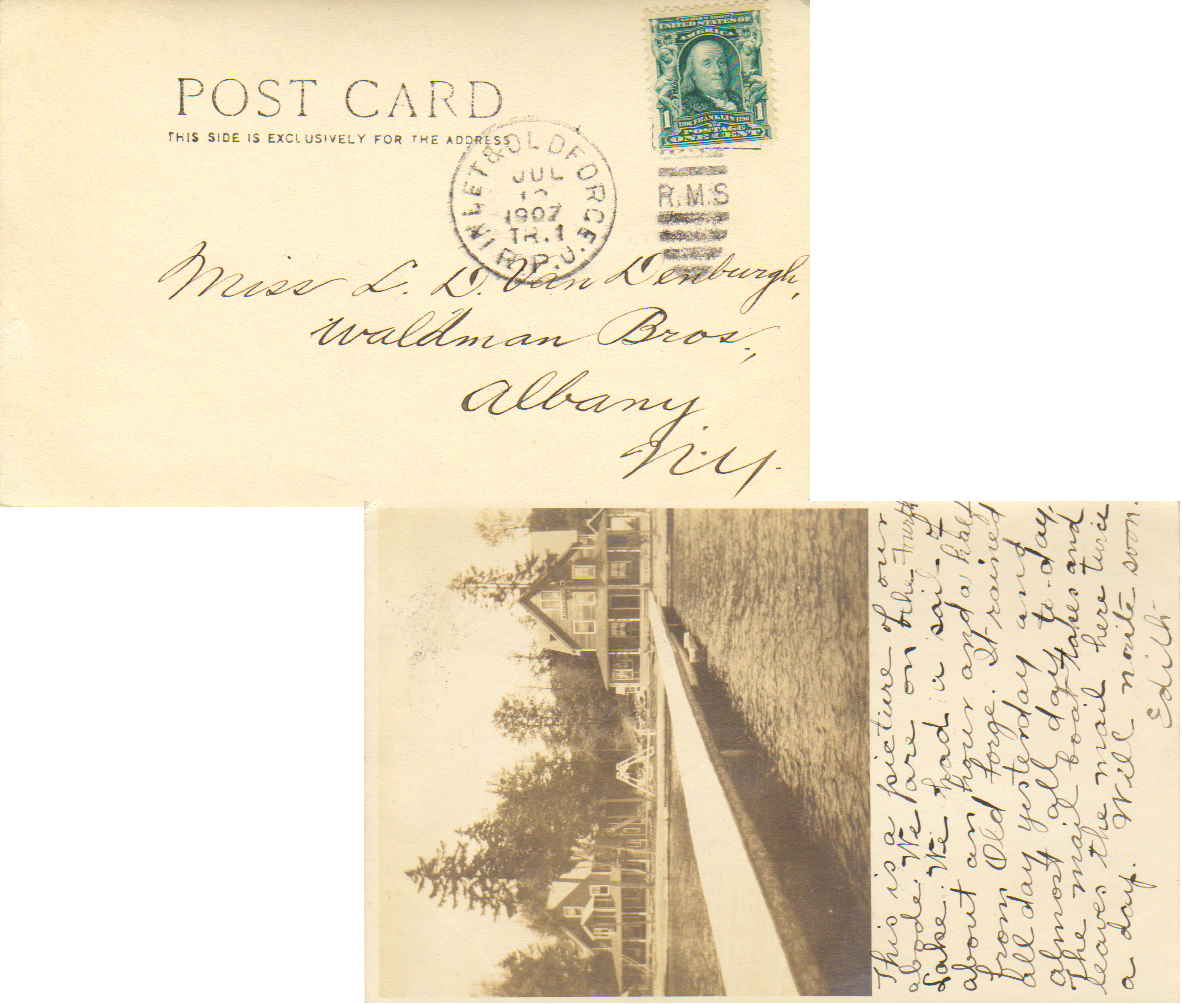 POST CARD
THIS SIDE IS EXCLUSIVELY FOR THE ADDRESS
UNITED STATES OF
AMERICA
1 1
POSTAGE
ONE CENT
INLET & OLD FORGE
JUL
1907
TR.1
R.P.O.
R.M.S
Miss L. D. Van Denburgh,
Waldman Bros.,
Albany
N.Y.
This is a picture of our
abode. We are on the Fourth
Lake. We had a sail of
about an hour and a half
from Old Forge. It rained
all day yesterday and
almost all day to-day.
The mail boat takes and
leaves the mail here twice
a day. Will write soon.
Edith